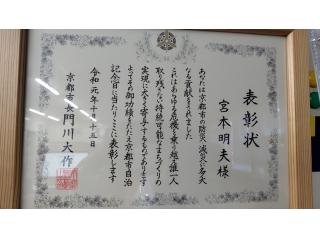 表彰状
宮本明夫様
あなたは京都市の防災減災に多大
なる貢献をされました
これはあらゆる危機を乗り越え誰一人
取り残さない持続可能なまちづくりの
実現に大きく寄与するものであります
よってその御功績をたたえ京都市自治
記念日に当たりここに表彰します
令和元年十月十五日
京都市長門川大作